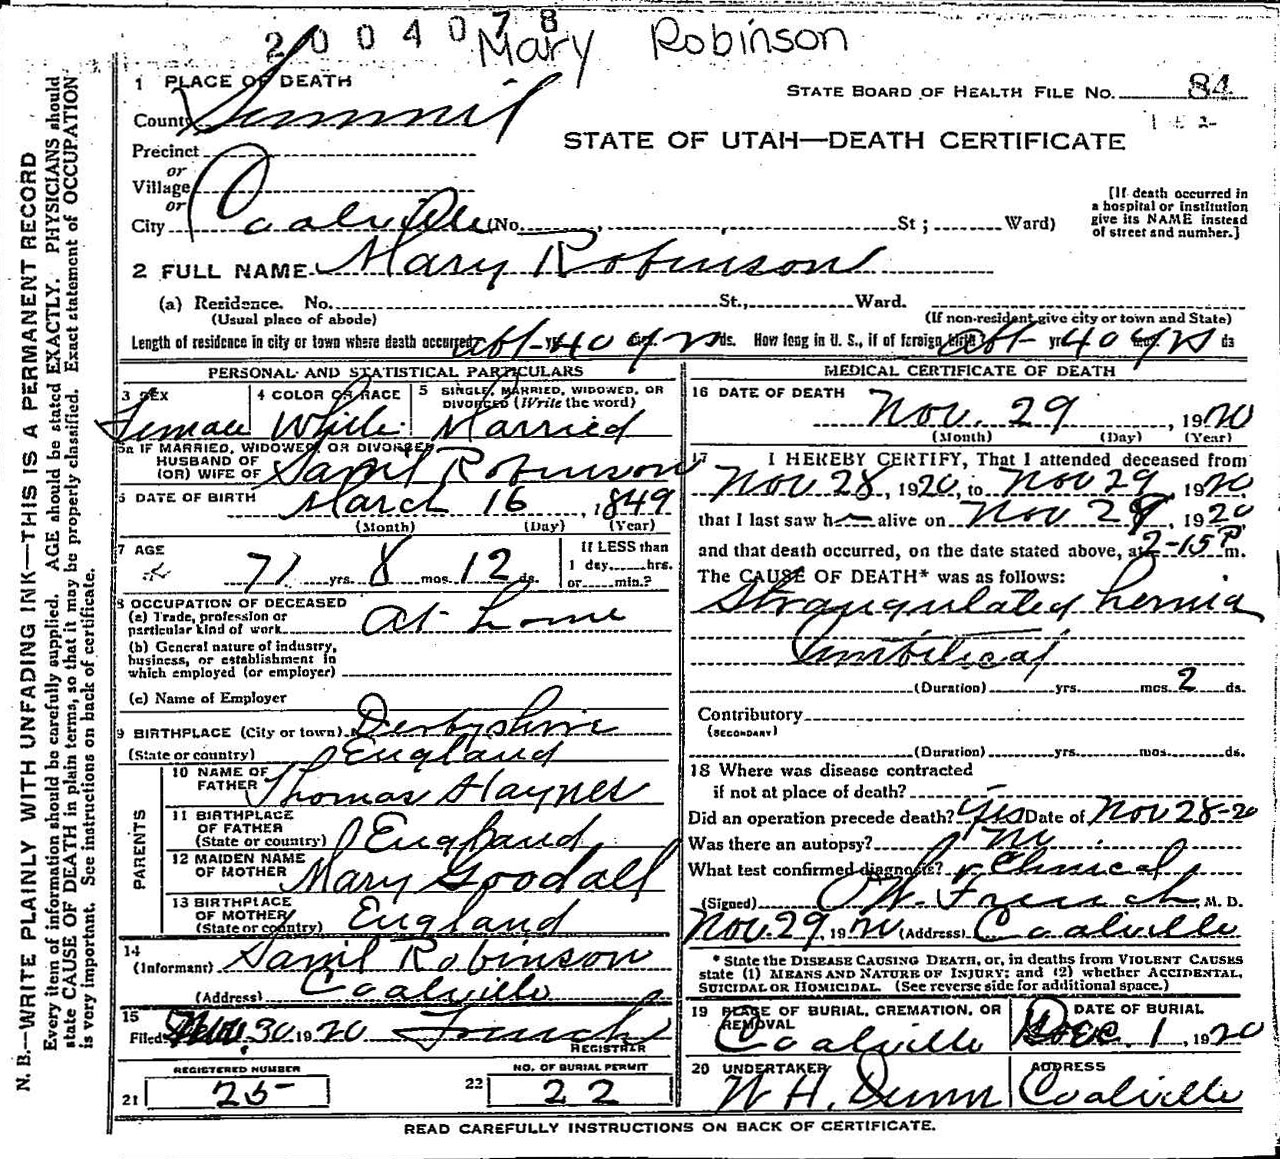 2004078
Mary Robinson
1 PLACE OF DEATH
STATE BOARD OF HEALTH FILE NO. 84
County Summit
STATE OF UTAH—DEATH CERTIFICATE
Precinct
or
Village
or
City Coalville (No. , , St ; Ward)
[If death occurred in
a hospital or institution
give its NAME instead
of street and number.]
2 FULL NAME Mary Robinson
(a) Residence. No. St., Ward.
(Usual place of abode) (If non-resident give city or town and State)
Length of residence in city or town where death occurred abt- yrs. 40 yrs ds. How long in U. S., if of foreign birth? abt- yrs 40 yrs ds
PERSONAL AND STATISTICAL PARTICULARS
3 SEX Female
4 COLOR OR RACE White
5 SINGLE, MARRIED, WIDOWED, OR
DIVORCED (Write the word) Married
5a IF MARRIED, WIDOWED, OR DIVORCED
HUSBAND OF
(OR) WIFE OF Saml Robinson
6 DATE OF BIRTH March 16, 1849
(Month) (Day) (Year)
7 AGE
71 yrs 8 mos 12 ds.
If LESS than
1 day hrs.
or min.?
8 OCCUPATION OF DECEASED
(a) Trade, profession or
particular kind of work At home
(b) General nature of industry,
business, or establishment in
which employed (or employer)
(c) Name of Employer
9 BIRTHPLACE (City or town) Derbyshire
(State or country) England
PARENTS
10 NAME OF
FATHER Thomas Haynes
11 BIRTHPLACE
OF FATHER
(State or country) England
12 MAIDEN NAME
OF MOTHER Mary Goodall
13 BIRTHPLACE
OF MOTHER
(State or country) England
14
(Informant) Saml Robinson
(Address) Coalville
15
Filed Nov. 30 1920 French
REGISTRAR
REGISTERED NUMBER
21 25
NO. OF BURIAL PERMIT
22 22
MEDICAL CERTIFICATE OF DEATH
16 DATE OF DEATH
Nov. 29, 1920
(Month) (Day) (Year)
17 I HEREBY CERTIFY, That I attended deceased from
Nov 28, 1920, to Nov 29 1920
that I last saw h alive on Nov 29, 1920
and that death occurred, on the date stated above, at 2-15 P m.
The CAUSE OF DEATH* was as follows:
Strangulated hernia
Umbilical
(Duration) yrs. mos 2 ds.
Contributory
(SECONDARY)
(Duration) yrs. mos. ds.
18 Where was disease contracted
if not at place of death?
Did an operation precede death? Yes Date of Nov 28-20
Was there an autopsy? no
What test confirmed diagnosis? Clinical
(Signed) O.W. French, M. D.
Nov. 29, 1920 (Address) Coalville
* State the DISEASE CAUSING DEATH, or, in deaths from VIOLENT CAUSES
state (1) MEANS AND NATURE OF INJURY; and (2) whether ACCIDENTAL,
SUICIDAL OR HOMICIDAL. (See reverse side for additional space.)
19 PLACE OF BURIAL, CREMATION, OR
REMOVAL Coalville
DATE OF BURIAL
Dec. 1, 1920
20 UNDERTAKER
W H. Dunn
ADDRESS
Coalville
READ CAREFULLY INSTRUCTIONS ON BACK OF CERTIFICATE.
N. B.—WRITE PLAINLY WITH UNFADING INK—THIS IS A PERMANENT RECORD
Every item of information should be carefully supplied. AGE should be stated EXACTLY. PHYSICIANS should
state CAUSE OF DEATH in plain terms, so that it may be properly classified. Exact statement of OCCUPATION
is very important. See instructions on back of certificate.